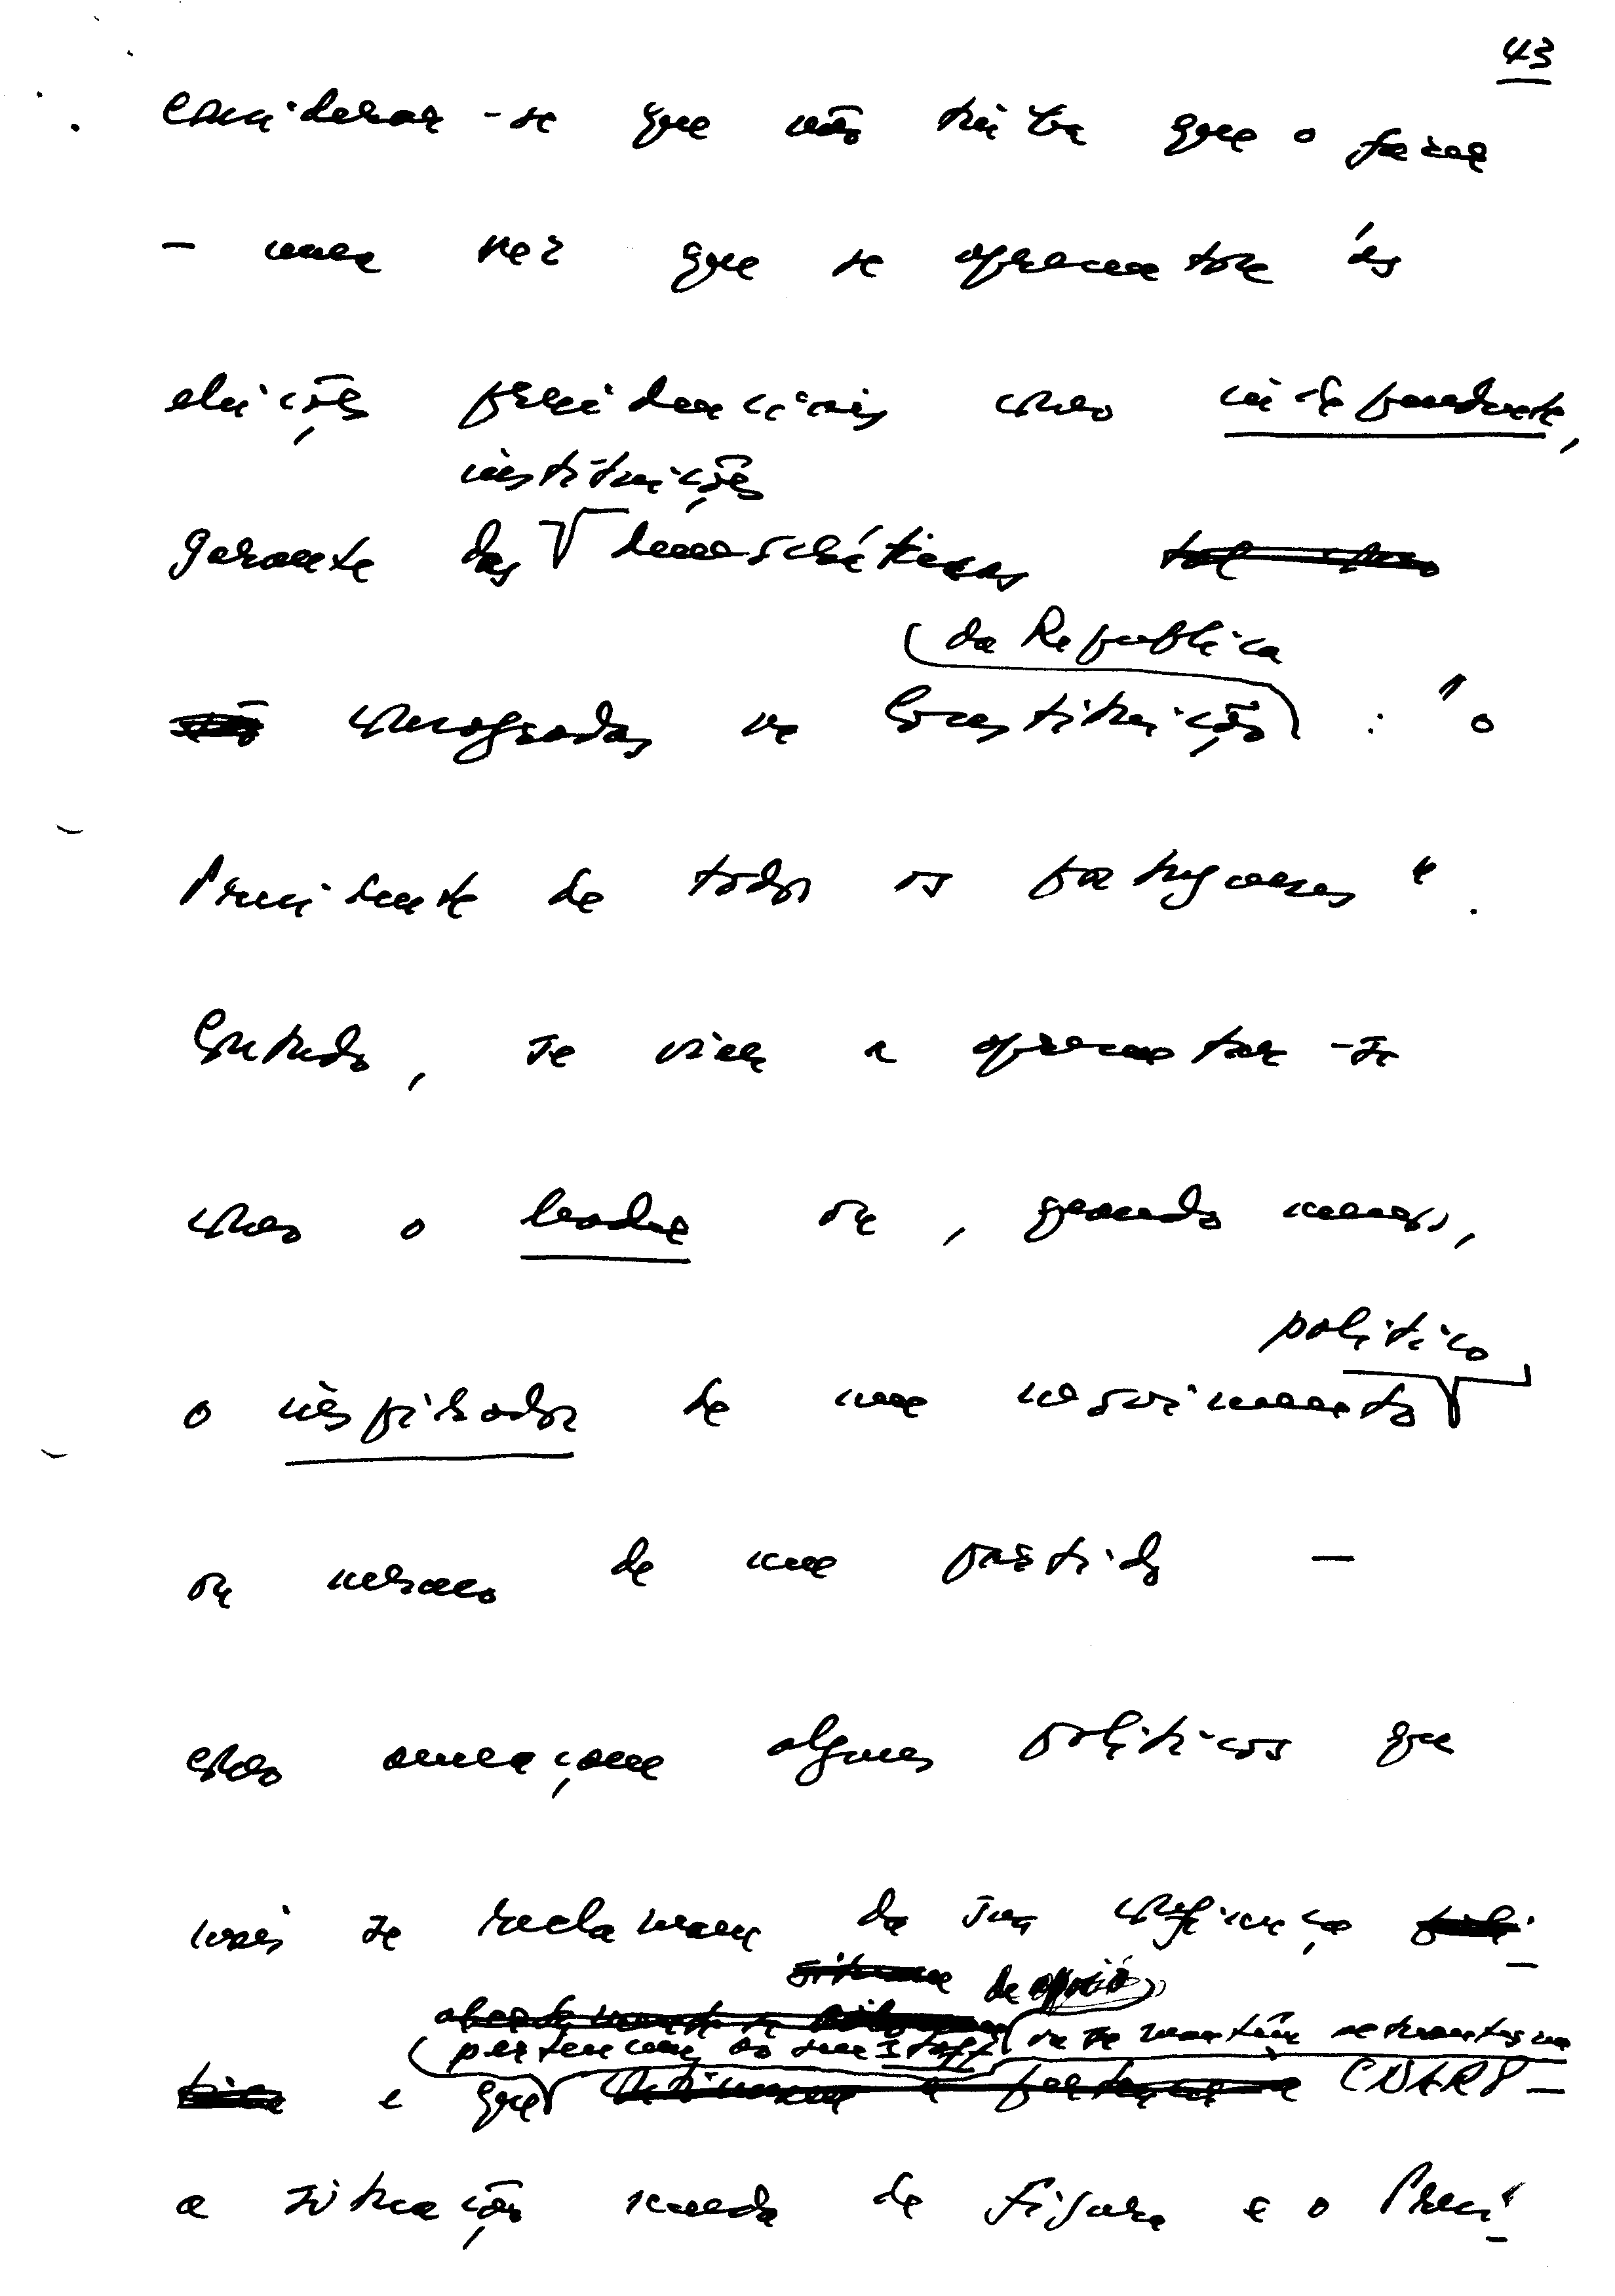 43
considerar-se que não tinha que o fazer
- uma vez que se apresentara às
eleições presidenciais como independente,
instituições
garante das democráticas
da Republica
consagradas na Constituição : "o
Presidente de todos os portugueses".
Contudo, se viesse a apresentar-se
como o leader ou, quando menos,
o inspirador de um movimento
político
ou mesmo de um partido –
como ameaçam alguns políticos que
mais se reclamam da sua confiança
de apoio
pertencem ao seu staff ou se mantêm actuantes na
e que CNARPE –
a situação muda de figura e o Presi-